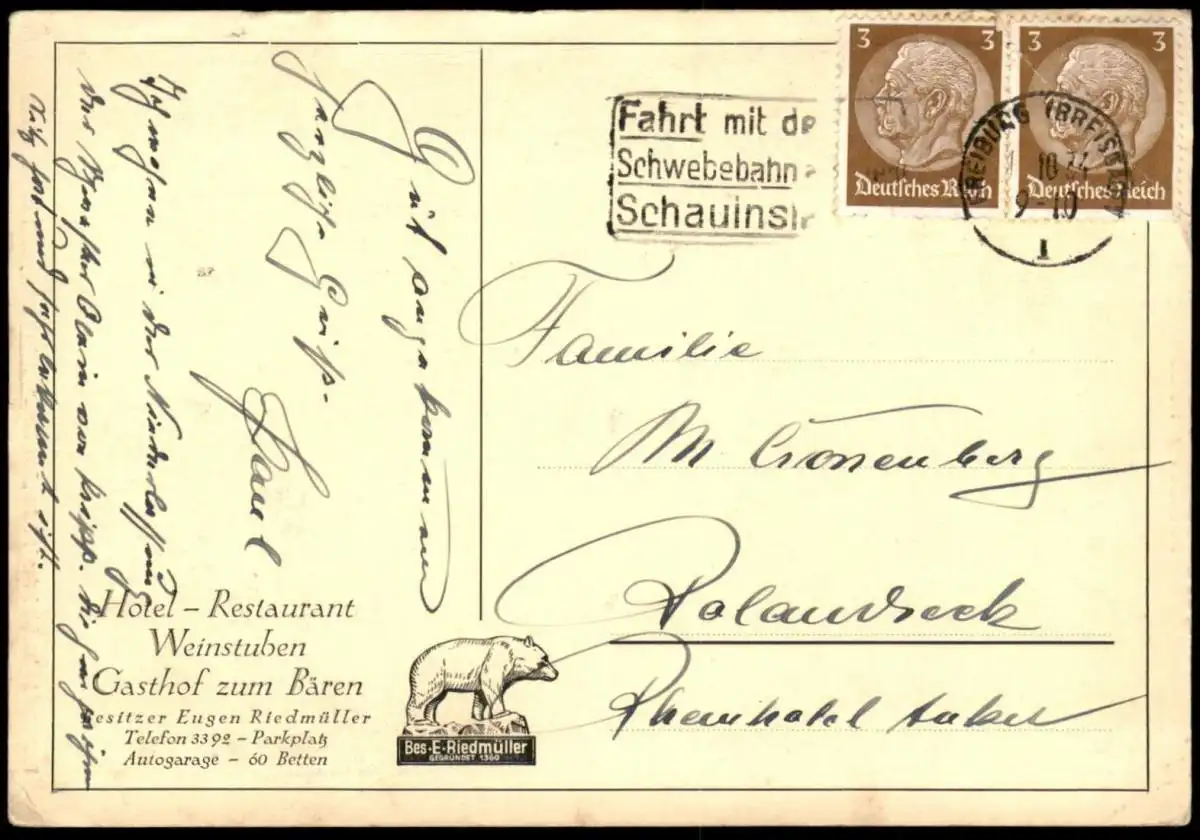 Gut angekommen
herzliche Grüße.
Paul
Wir wohnen in der Niederlassung
der
von Kripp. Die ganzen
bekannt ist.
Hotel – Restaurant
Weinstuben
Gasthof zum Bären
Besitzer Eugen Riedmüller
Telefon 3392 – Parkplatz
Autogarage – 60 Betten
Bes·E·Riedmüller
GEGRÜNDET 1360
Fahrt mit de
Schwebebahn
Schauinsl
3 3
Deutsches Reich
3 3
Deutsches Reich
FREIBURG (BREISGAU)
9-10
1
Familie
Cronenberg
Rolandseck
Rheinhotel Anker